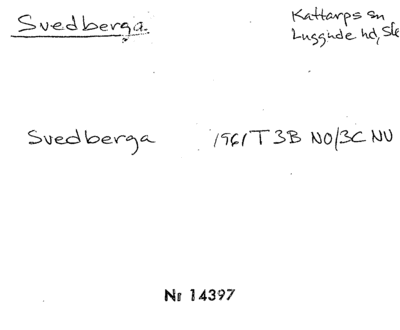 Svedberga.
Kattarps sn
Luggude hd,
Svedberga 1961 T 3B NO/3C NV
Nr 14397